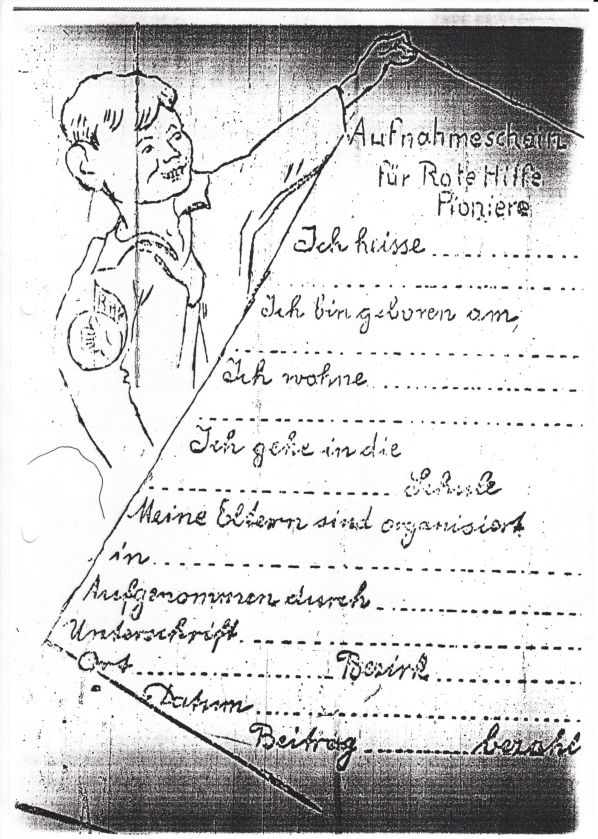 Aufnahmeschein
für Rote Hilfe
Pioniere
Ich heisse
Ich bin geboren am,
Ich wohne
Ich gehe in die
Schule
Meine Eltern sind organisiert
in
Aufgenommen durch
Unterschrift
Ort Bezirk
Datum
Beitrag bezahl